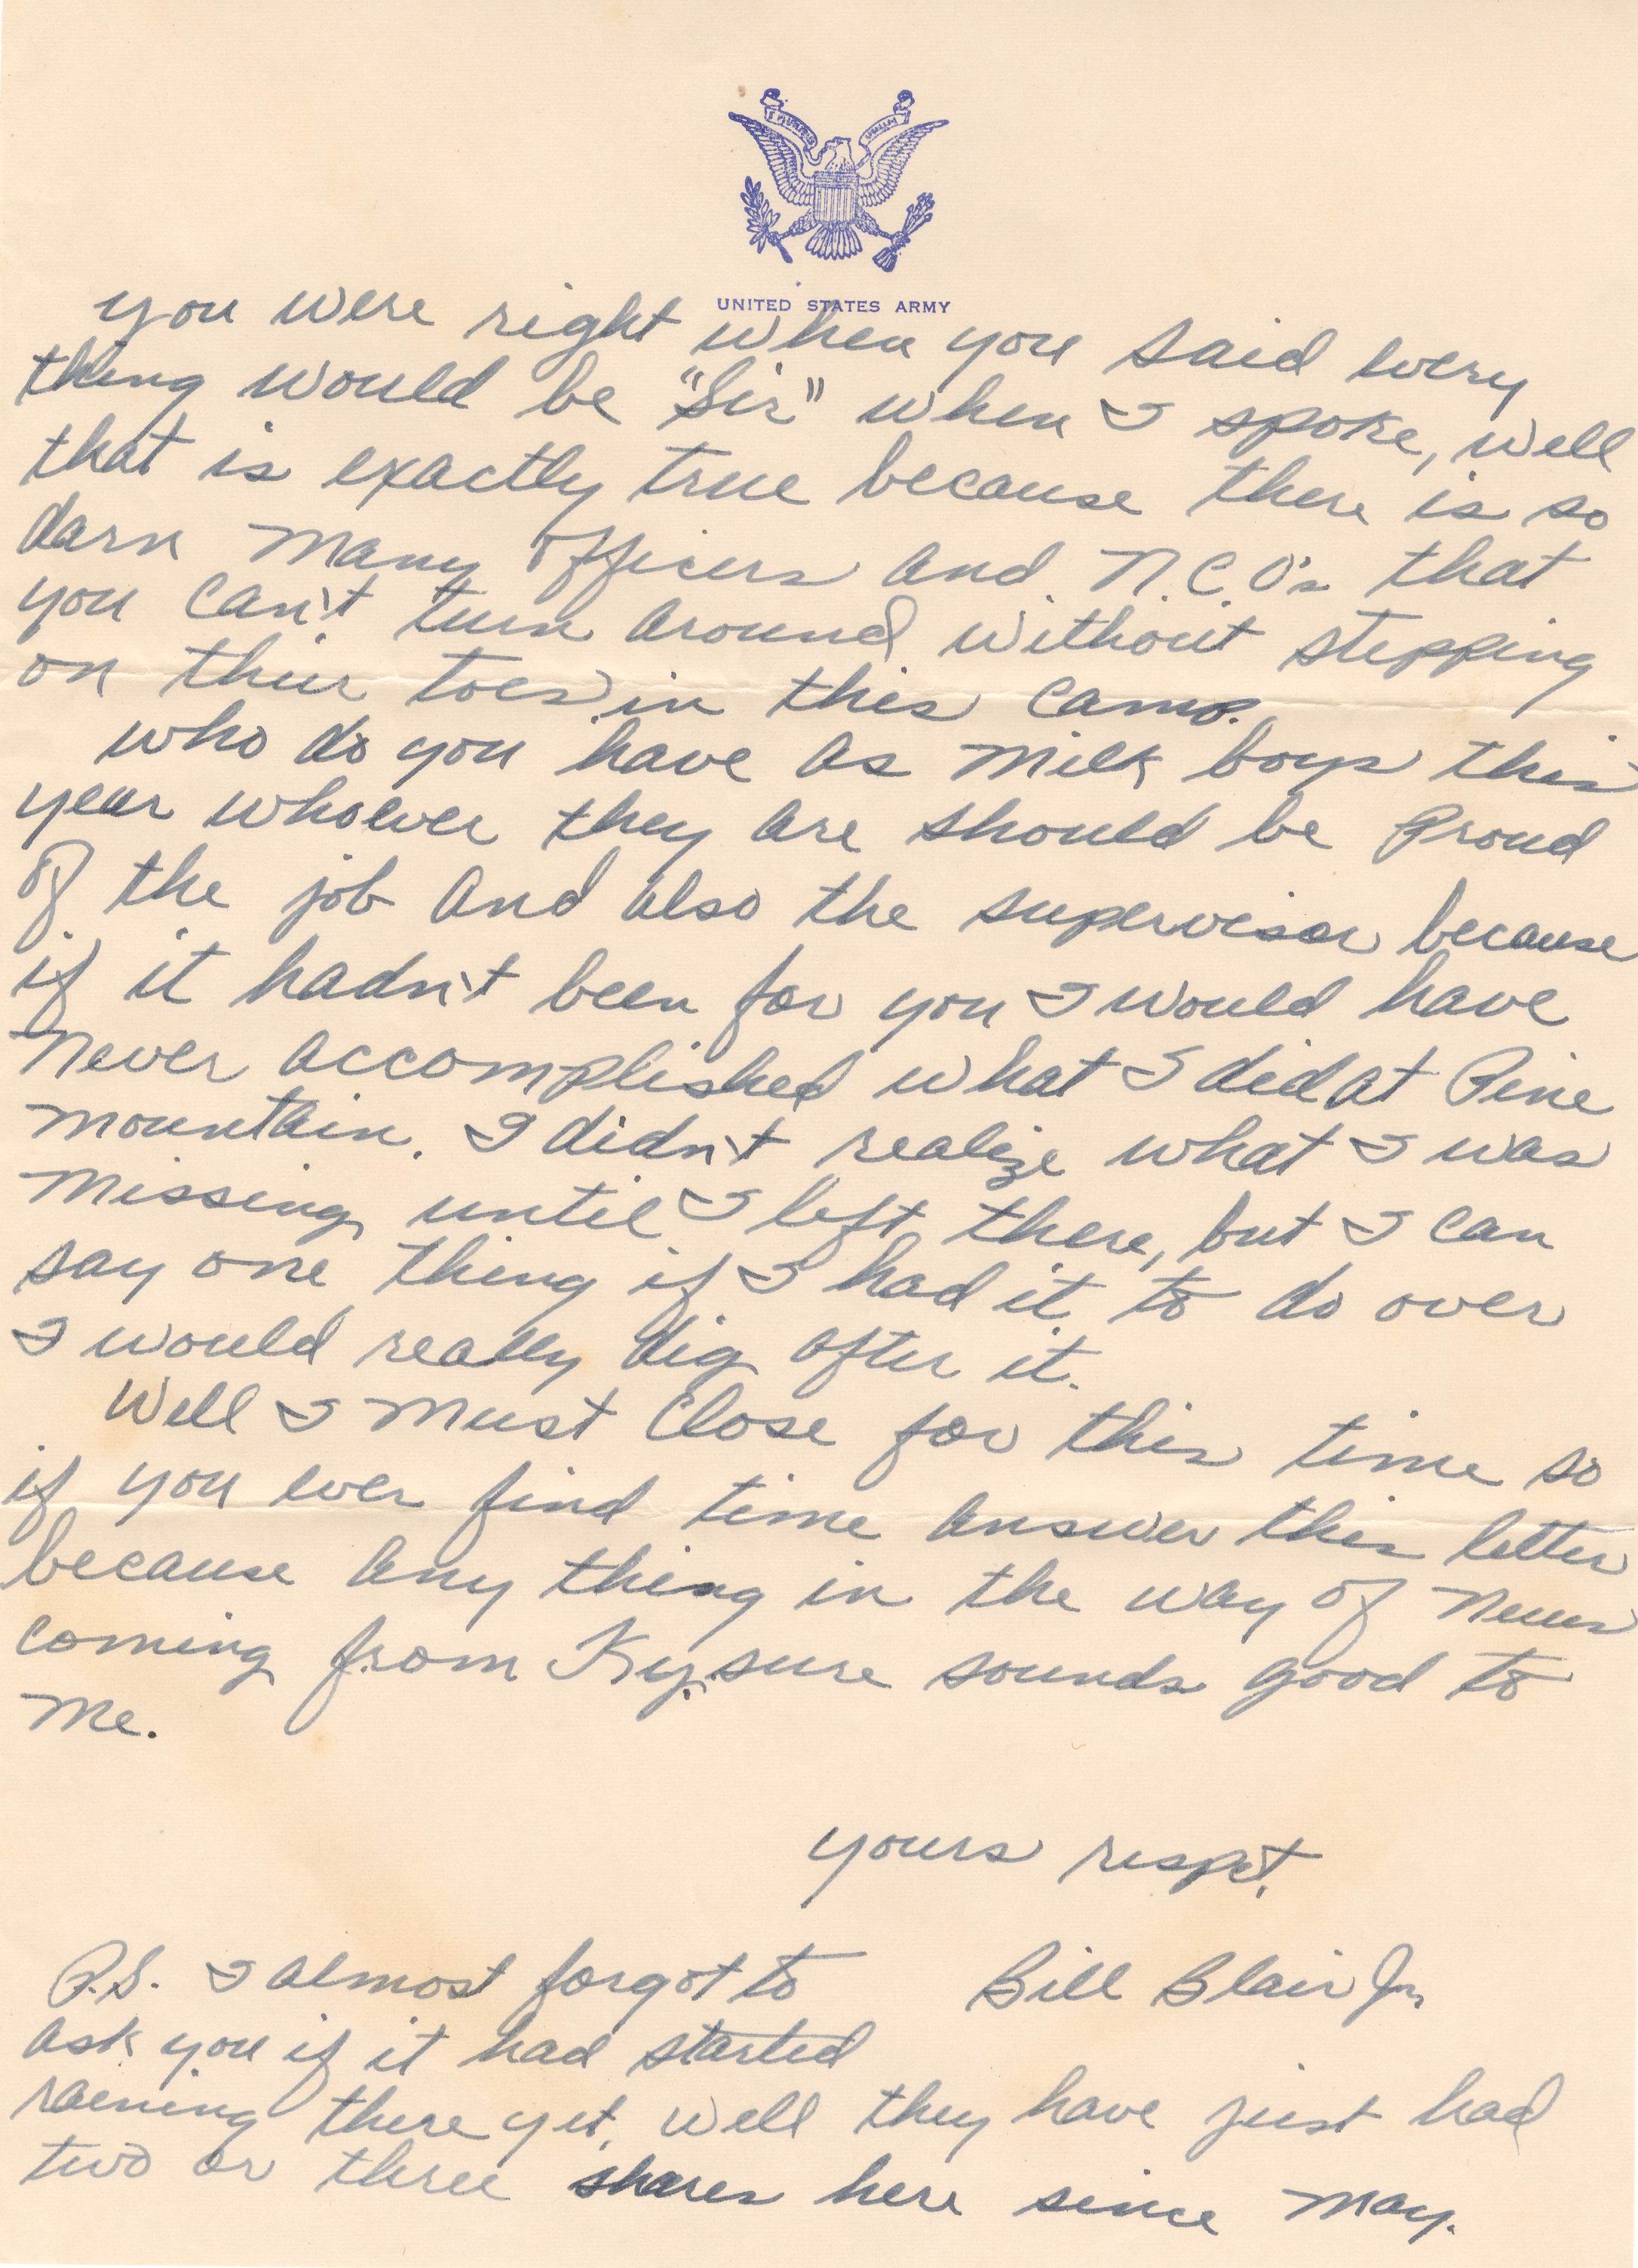 UNITED STATES ARMY
you were right when you said every
thing would be "Sir" when I spoke, well
that is exactly true because there is so
darn many officers and N.C.O's that
you can't turn around without stepping
on their toes in this camp.
who do you have as milk boys this
year whoever they are should be proud
of the job and also the supervisor because
if it hadn't been for you I would have
never accomplished what I did at Pine
mountain. I didn't realize what I was
missing until I left there, but I can
say one thing if I had it to do over
I would really dig after it.
Well I must close for this time so
if you ever find time answer this letter
because any thing in the way of news
coming from Ky. sure sounds good to
me.
yours respct.
Bill Blair Jr.
P.S. I almost forgot to
ask you if it had started
raening there yet, well they have just had
two or three shares here since may.